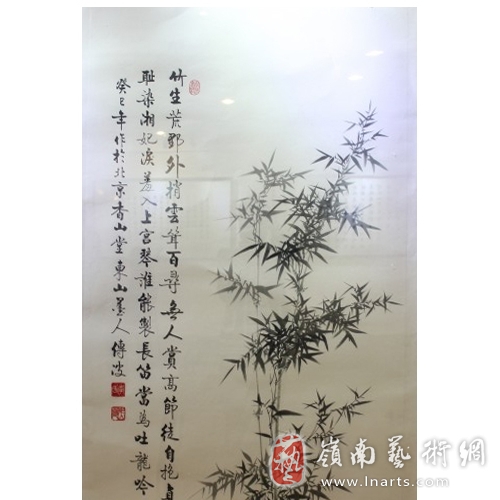 竹生荒野外梢雲聳百尋無人賞高節徒自抱貞
恥染湘妃淚羞入上宮琴誰能製長笛當為吐龍吟
癸巳年作於北京香山堂東山墨人傳波
藝 嶺南藝術網
www.lnarts.com